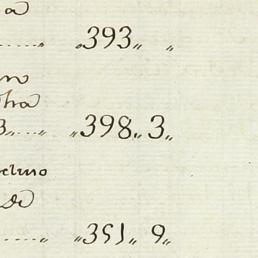 a
..... „ „393„ „
no
tra
3„....„ „398„ 3„
elmo
de
.....„ „351„ 9„